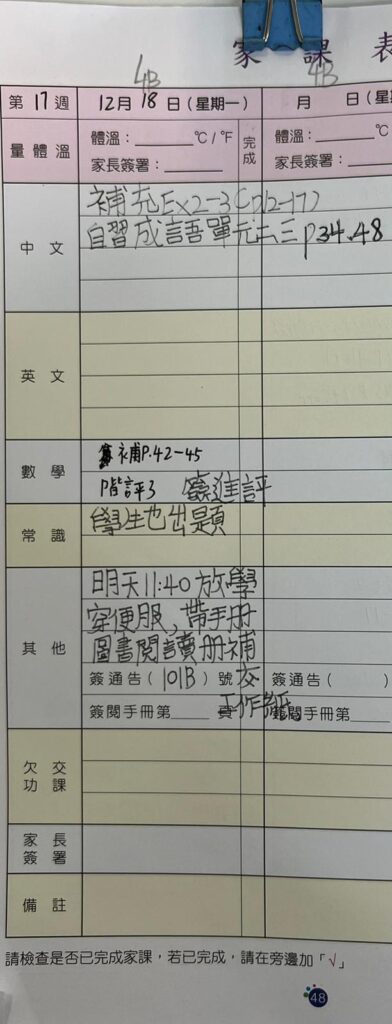 家課表
4B
4B
第17週 12月18日(星期一) 月 日(星
量體溫 體溫：______℃/℉ 完成 體溫：______℃
家長簽署：______ 家長簽署：
中文 補充Ex2-3(p12-17)
自習成語單元二三 p34.48
英文
數學 補P.42-45
階評3 簽進評
常識 學生也出題
其他 明天11:40放學
穿便服，帶手冊
圖書閱讀册補
簽通告(101B)號交 簽通告( )
簽閱手冊第____頁工作紙 簽閱手冊第
欠交功課
家長簽署
備註
請檢查是否已完成家課，若已完成，請在旁邊加「√」
48